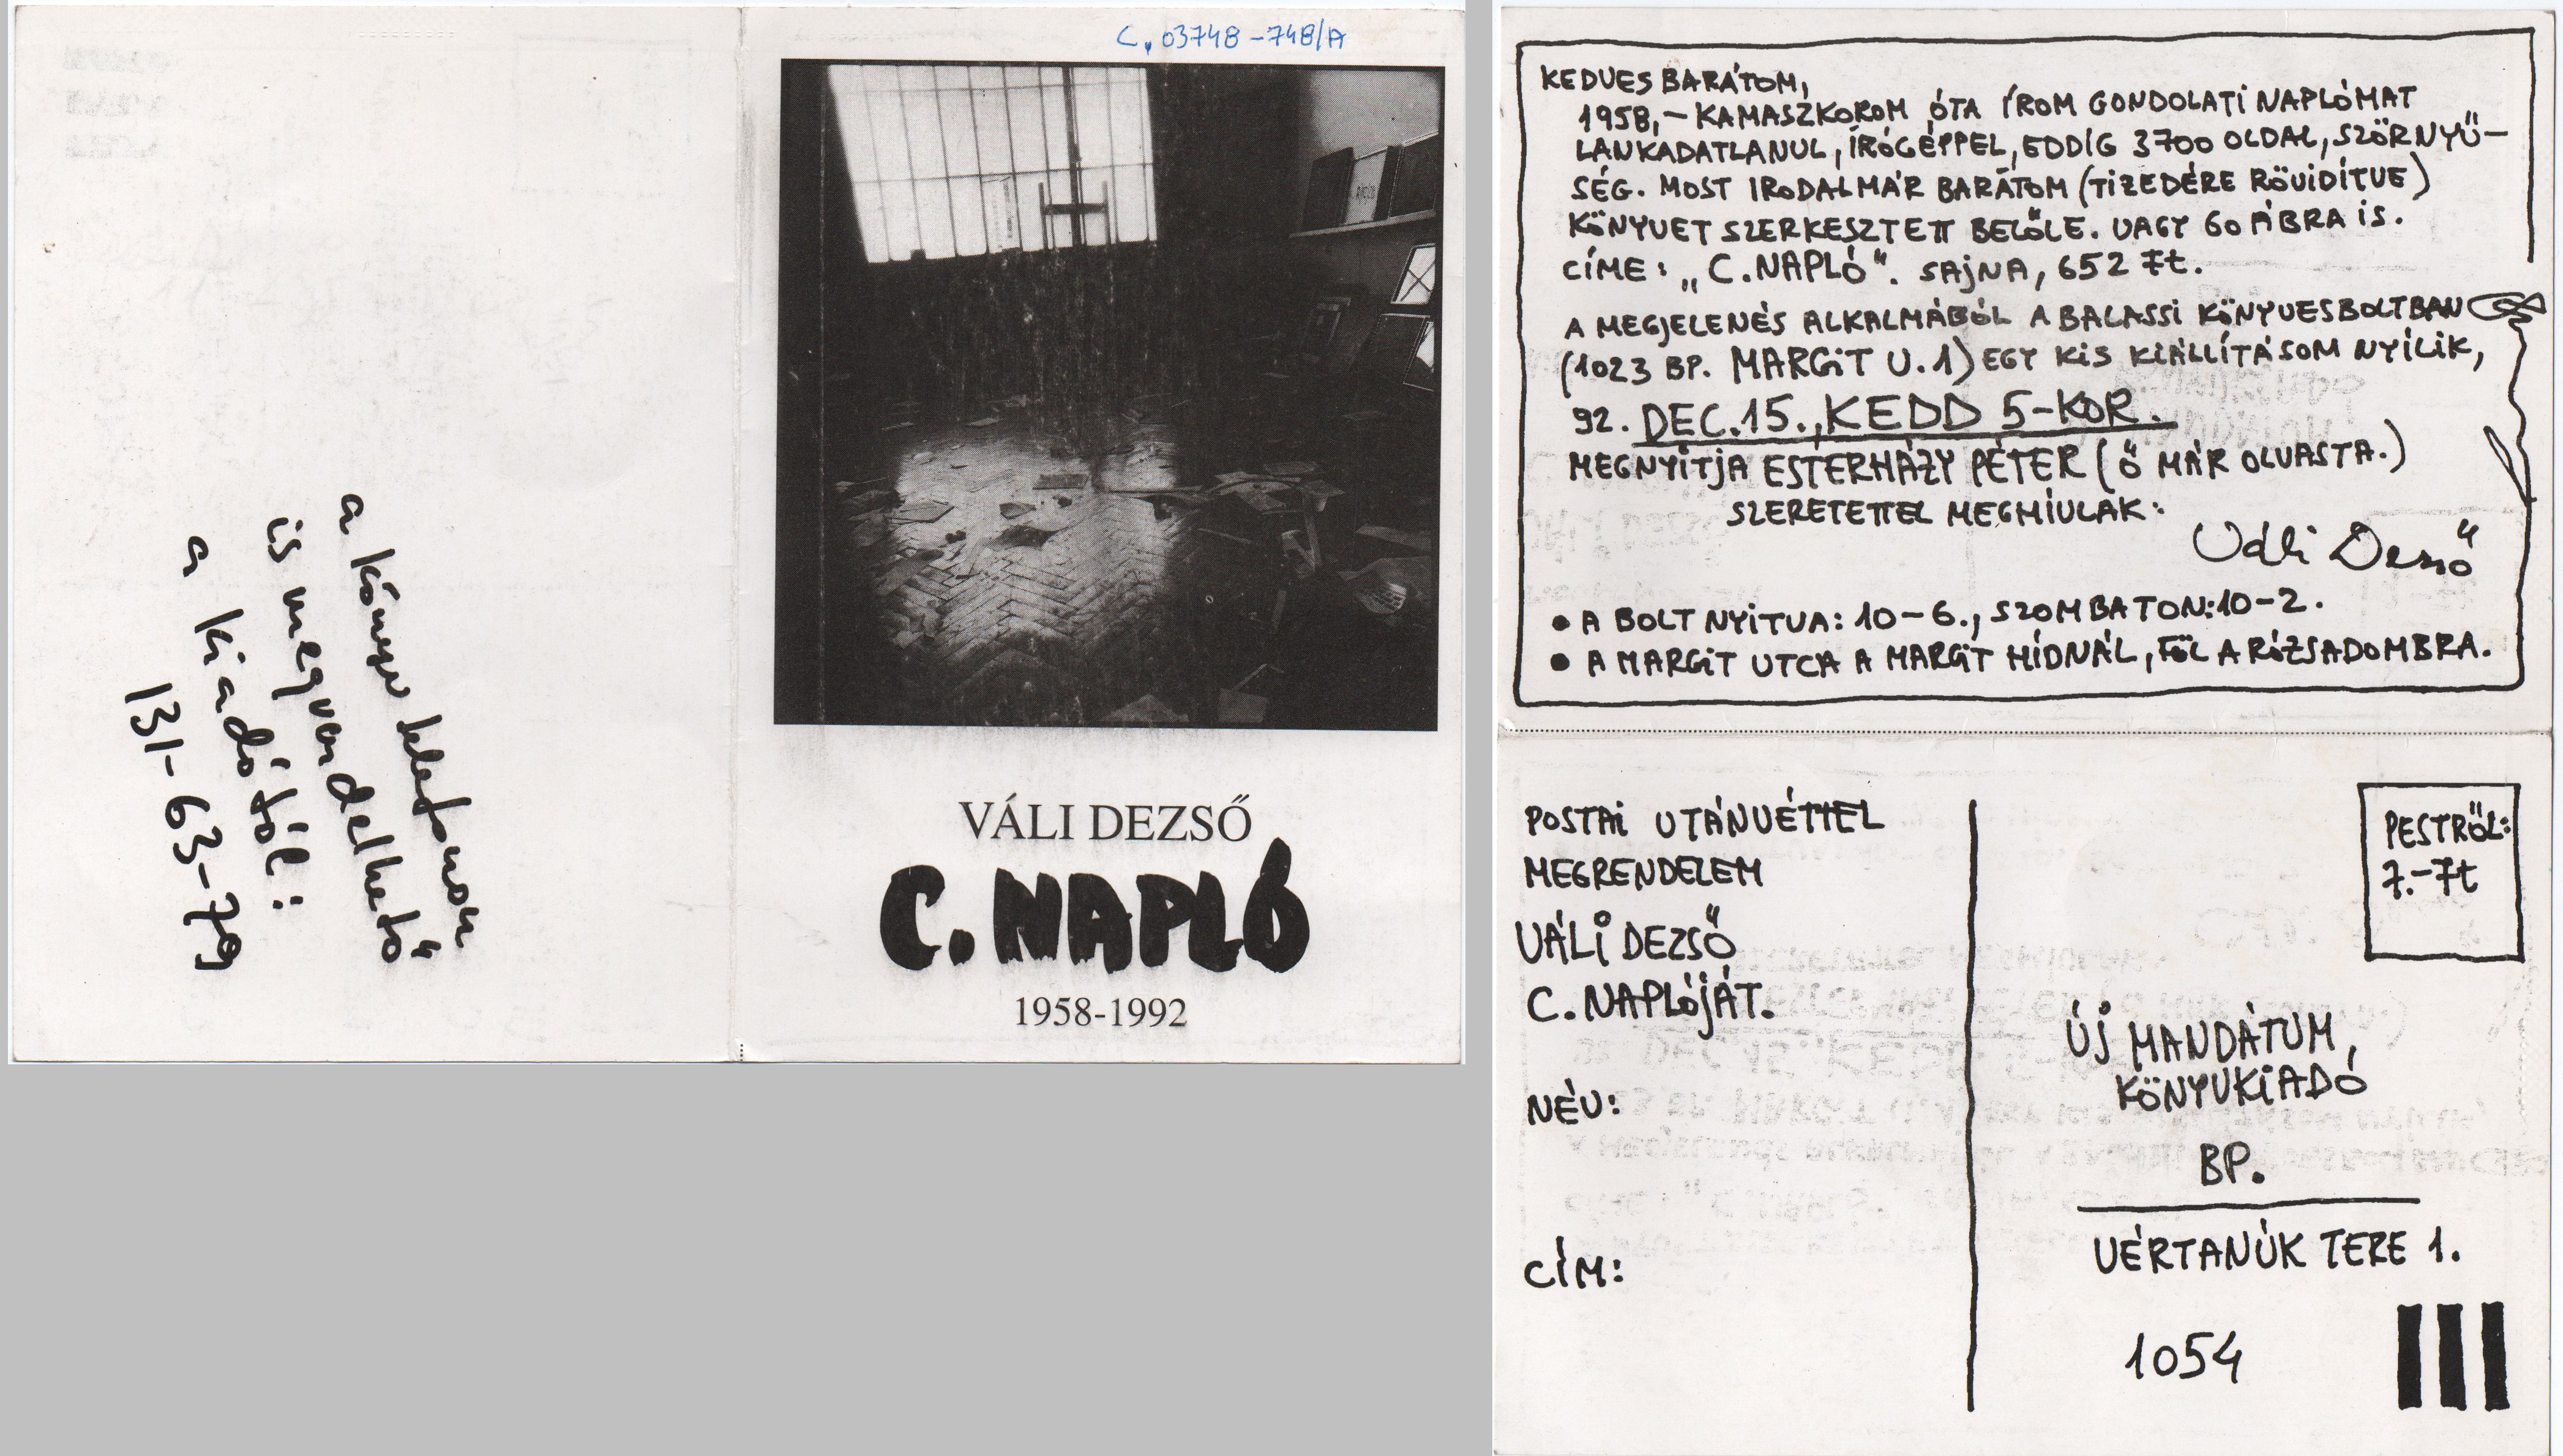 C. 03748-748/A
a könyv telefonon
is megrendelhető
a kiadótól:
131-63-79
VÁLI DEZSŐ
C. NAPLÓ
1958-1992
KEDVES BARÁTOM,
1958,- KAMASZKOROM ÓTA ÍROM GONDOLATI NAPLÓMAT
LANKADATLANUL, ÍRÓGÉPPEL, EDDIG 3700 OLDAL, SZÖRNYŰ-
SÉG. MOST IRODALMÁR BARÁTOM (TIZEDÉRE RÖVIDÍTVE)
KÖNYVET SZERKESZTETT BELŐLE. VAGY 60 ÁBRA IS.
CÍME: „C. NAPLÓ". SAJNA, 652 Ft.
A MEGJELENÉS ALKALMÁBÓL A BALASSI KÖNYVESBOLTBAN
(1023 BP. MARGIT U. 1) EGY KIS KIÁLLÍTÁSOM NYÍLIK,
92. DEC. 15., KEDD 5-KOR.
MEGNYITJA ESTERHÁZY PÉTER (Ő MÁR OLVASTA.)
SZERETETTEL MEGHÍVLAK:
Váli Dezső
• A BOLT NYITVA: 10-6., SZOMBATON: 10-2.
• A MARGIT UTCA A MARGIT HÍDNÁL, FÖL A RÓZSADOMBRA.
POSTAI UTÁNVÉTTEL
MEGRENDELEM
VÁLI DEZSŐ
C. NAPLÓJÁT.
NÉV:
CÍM:
PESTRŐL:
7.-Ft
ÚJ MANDÁTUM,
KÖNYVKIADÓ
BP.
VÉRTANÚK TERE 1.
1054